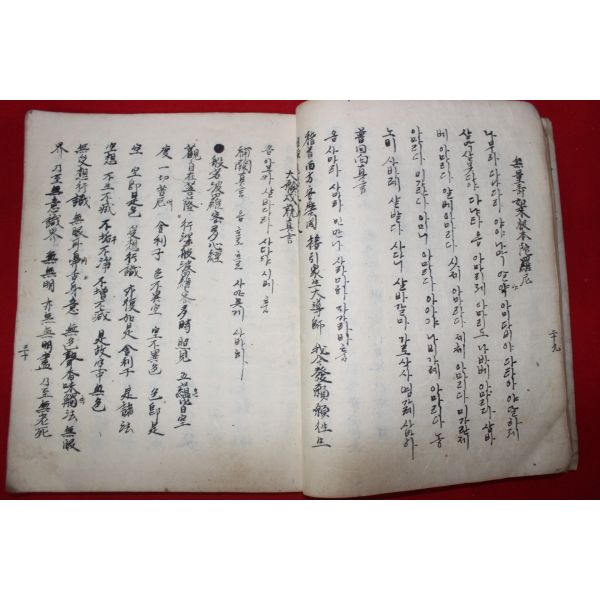 無量壽如來根本陀羅尼
二十九
나무라 다나다라 야야 나막 알약 아미다바야 다타아 야알하제
삼먁삼못다야 다냐타 옴 아마리제 아마리도 나바베 아마리다 삼바
베 아마리다 알베 아마리다 싯제 아마리다 제제 아마리다 미가란제
아마리다 미가란다 아마니 아마리다 아아야 나비가레 아마리다 농
노비 사바레 살발타 사다니 살바갈마 가로삭사 염가레 사바하
普回向眞言
옴 사마라 사마라 미만나 사라마하 자가라바 훔
稽首西方安樂國 接引衆生大導師 我今發願願往生
大願成就眞言
옴 아모카 살바다라 사다야 시베 훔
補闕眞言 옴 호로호로 사야목케 사바하
●般若波羅蜜多心經
觀自在菩薩 行深般若波羅蜜多時 照見五蘊皆空
度一切苦厄 舍利子 色不異空 空不異色 色卽是
空 空卽是色 受想行識 亦復如是 舍利子 是諸法
空想 不生不滅 不垢不淨 不增不減 是故空中無色
無受想行識 無眼耳鼻舌身意 無色聲香味觸法 無眼
界 乃至無意識界 無無明 亦無無明盡 乃至無老死
三十